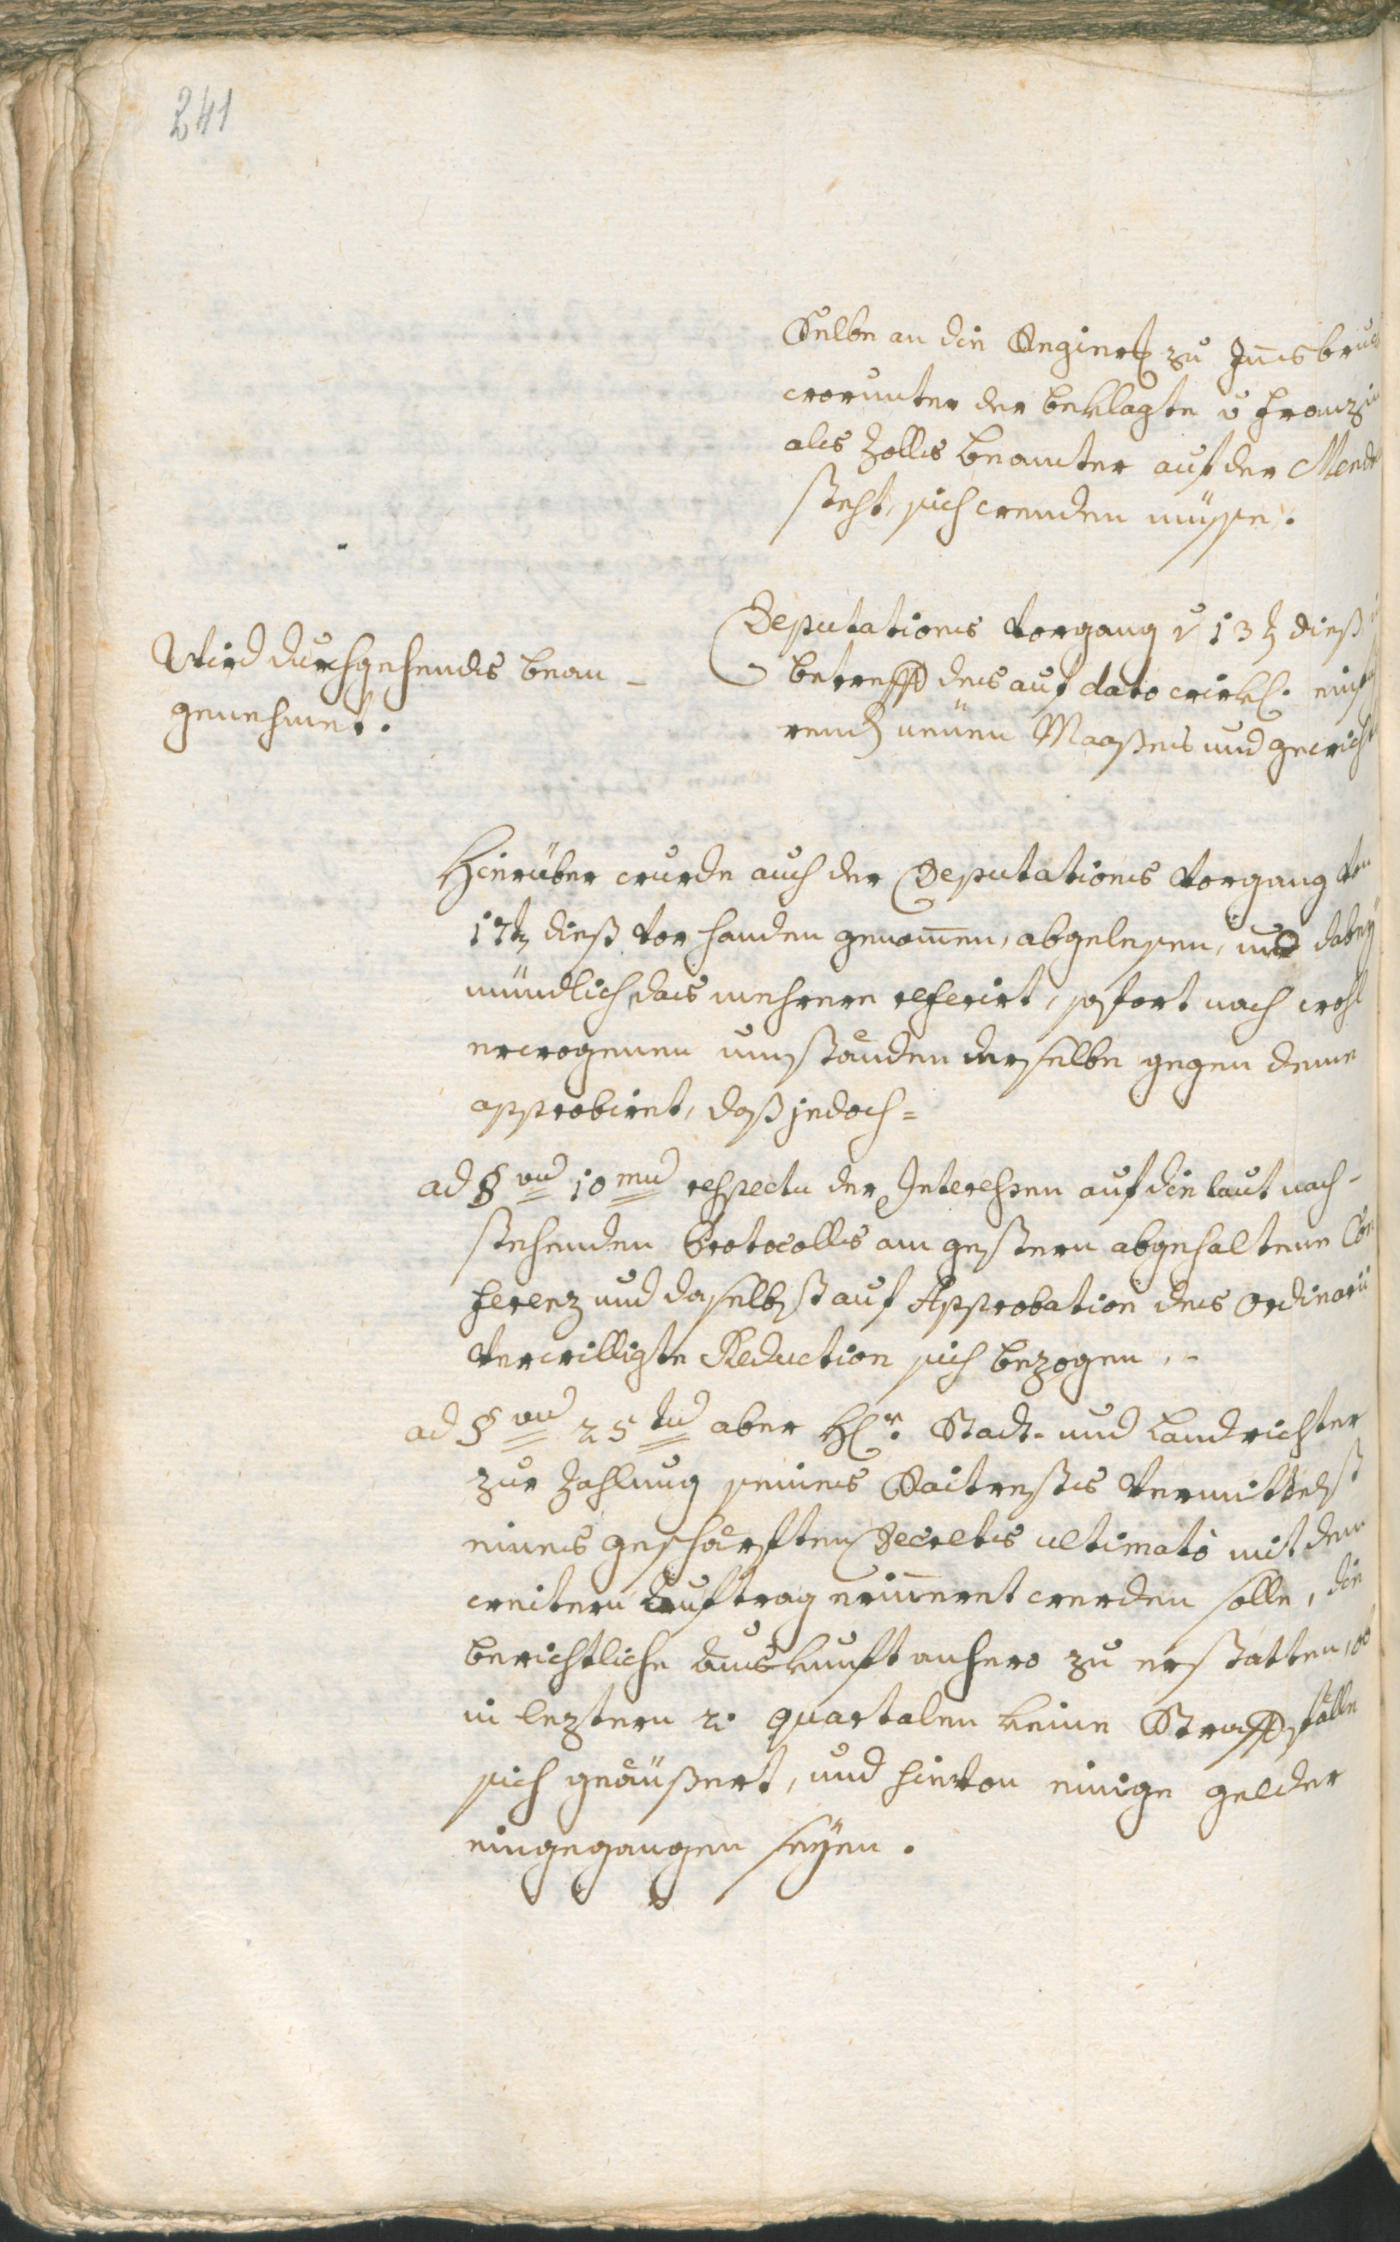 241
Selbe an die Regier⟨ung⟩ zu Innsbruck
worunter der beklagte v Franzin
als Zolls Beamter auf der Mendl
steht, sich wenden müsse.
Wird durchgehends bean-
genehmet.
Deputations Vorgang v 13t dieß
betreff des auf dato wirkl. einfüh
rend neuen Maaßes und gewicht
Hierüber wurde auch der Deputations Vorgang vom
17t dieß vor handen genom̅en, abgelesen, und dabey
mündlich das mehrere referirt, sofort nach wohl
erwogenen umständen derselbe gegen deme
approbiret, daß jedoch=
ad §vu̅ 10mu̅ respectu der Interessen auf die laut nach-
stehenden Protocolls am gestern abgehaltene Con
ferenz und daselbst auf Approbation des Ordinarii
verwilligte Reduction sich bezogen, -
ad §vu̅ 25tu̅ aber H⟨er⟩r. Stadt- und Landrichter
zur Zahlung seines Raitrests vermittelst
eines geschärften Decrets ultimato mit dem
weitern Auftrag erinneret werden solle, die
berichtliche Auskunft anhero zu erstatten, ob
in leztern 2. quartalen keine Straffälle
sich geäußert, und hievon einige gelder
eingegangen seyen.